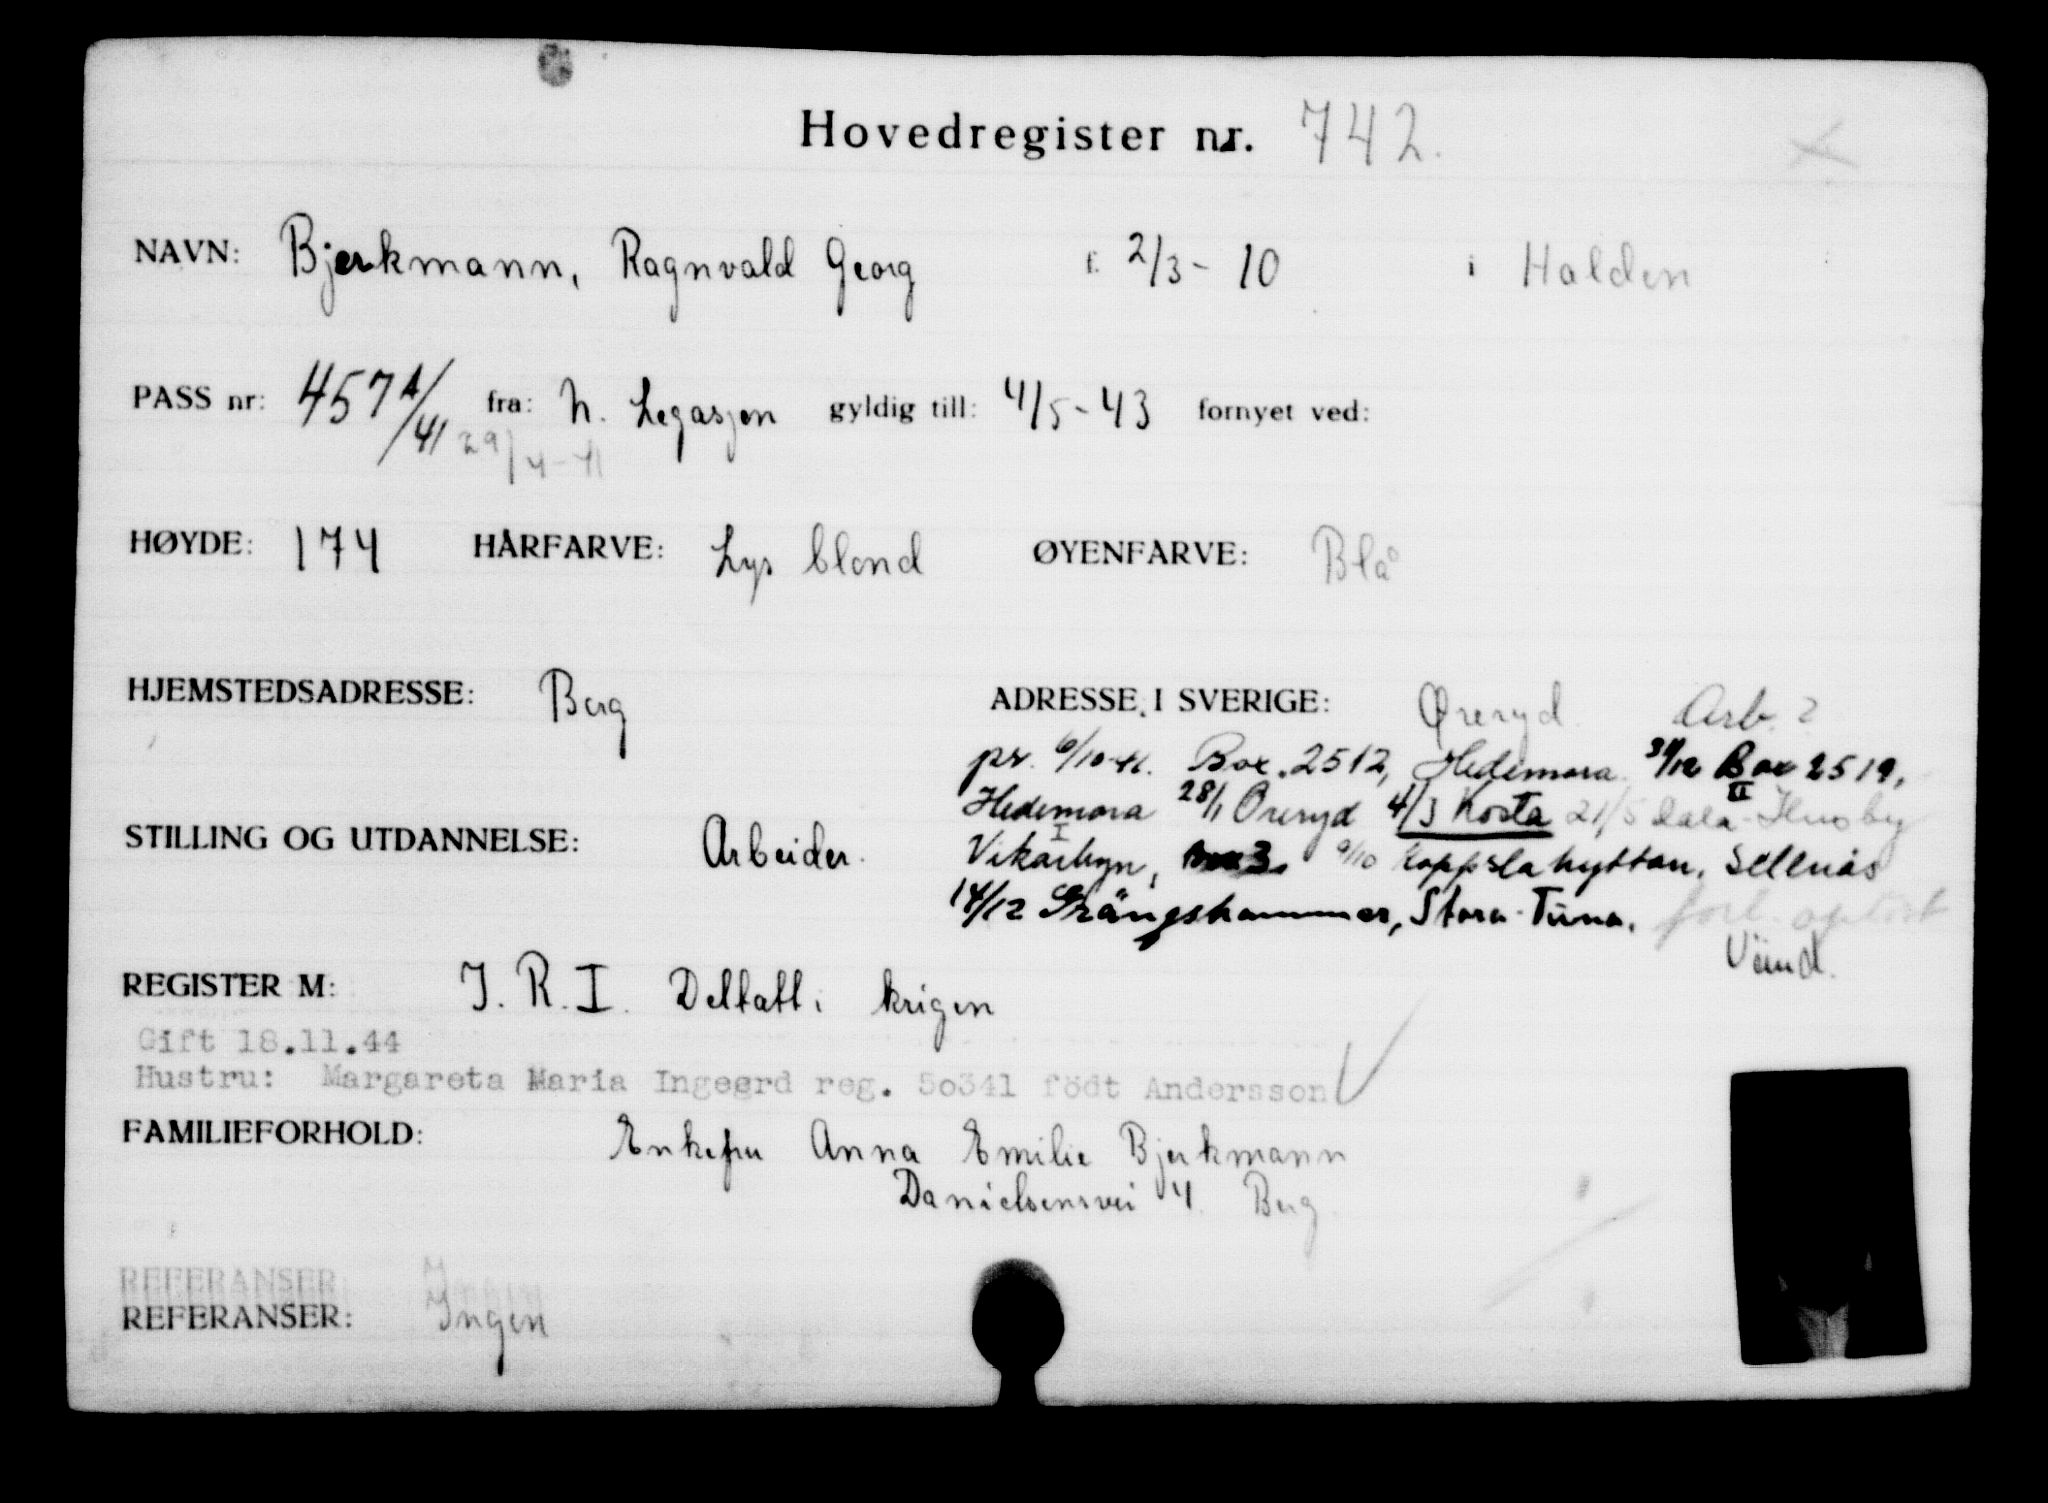 Hovedregister nr. 742.
NAVN: Bjerkmann, Ragnvald Georg f. 2/3 - 10 i Halden
PASS nr: 457 A/41 fra: N. Legasjon gyldig till: 4/5 - 43 fornyet ved:
29/4 - 41
HØYDE: 174 HÅRFARVE: Lys blond ØYENFARVE: Blå
HJEMSTEDSADRESSE: Berg ADRESSE I SVERIGE: Øreryd Arb. 2
pr. 6/10-41. Box. 2512, Hedemora. 31/12 Box 2519,
Hedemora 28/1 Öreryd 4/3 Kosta II 21/5 Dala-Husby
STILLING OG UTDANNELSE: Arbeider.
I Vikarbyn, 9/10 Koppslahyttan, Sellnäs
14/12 Grängshammer, Stora-Tuna.
REGISTER M: I. R. I. Deltatt i krigen
Gift 18.11.44
Hustru: Margareta Maria Ingegerd reg. 50341 född Andersson
FAMILIEFORHOLD: Enkefru Anna Emilie Bjerkmann
Danielsensvei 4. Berg.
REFERANSER
REFERANSER: Ingen